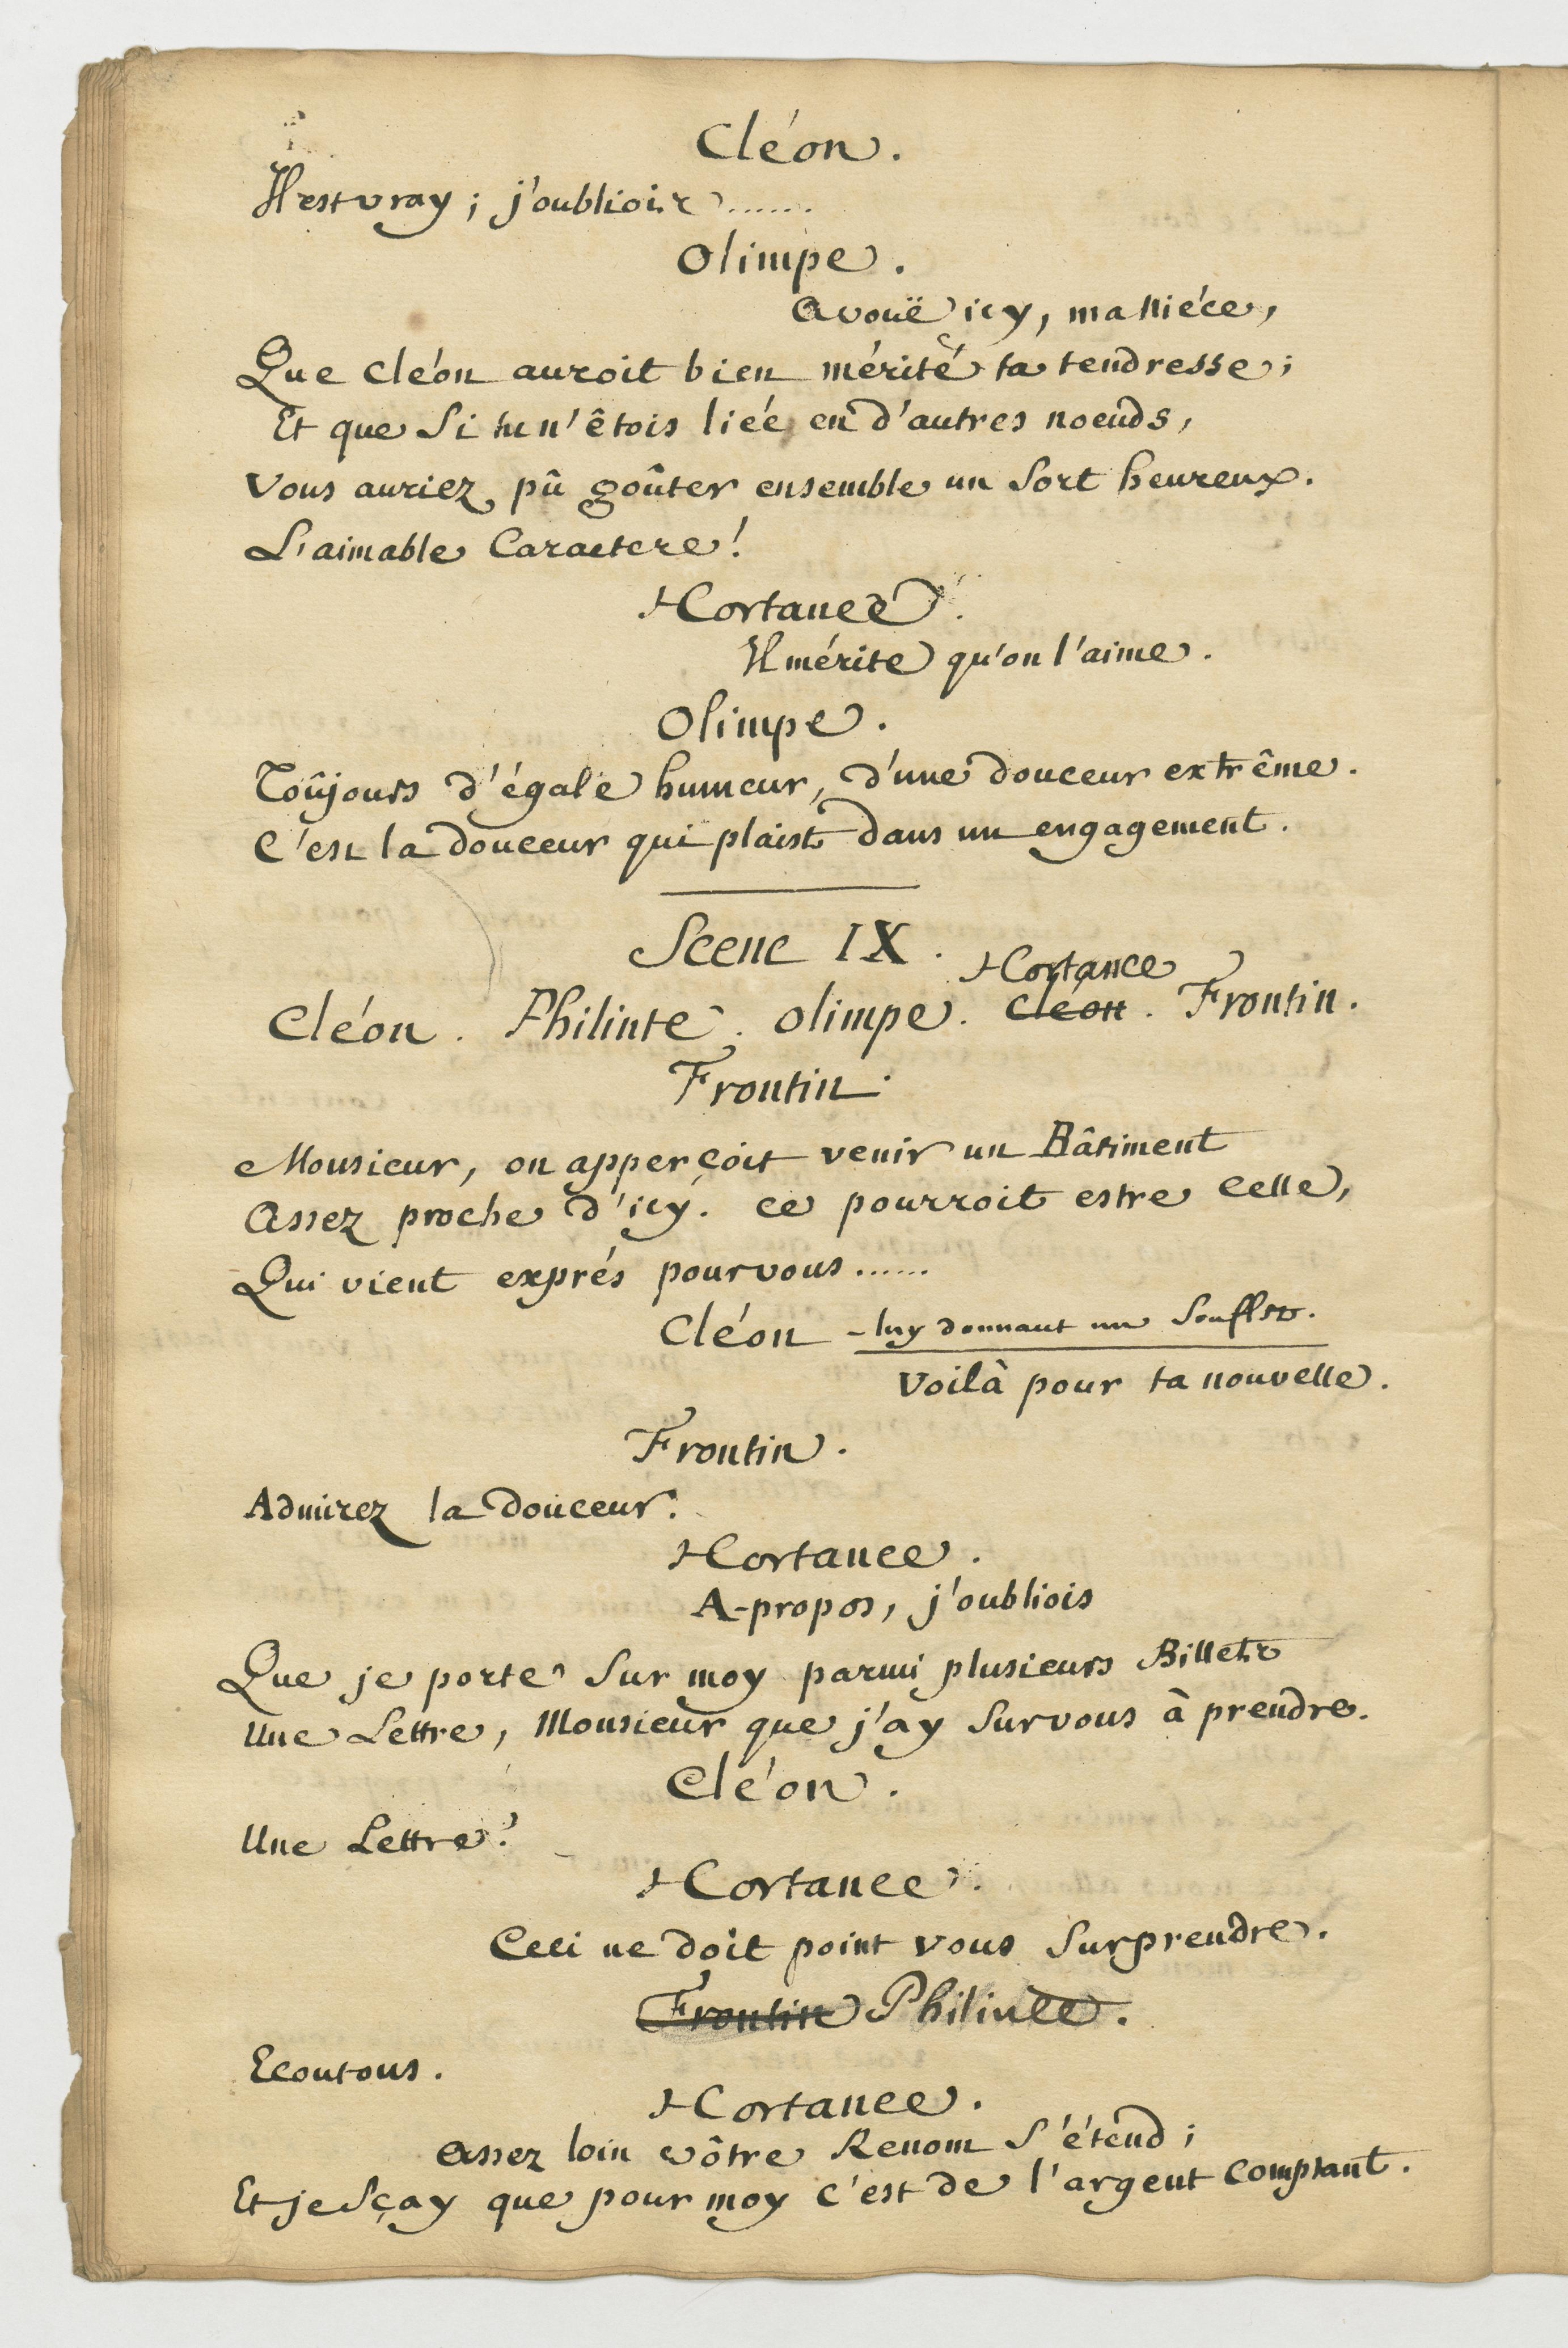 Cléon.
Il est vray; j'oubliois.......
Olimpe.
Avoüe icy, ma Niéce,
Que Cléon auroit bien mérité ta tendresse;
Et que Si tu n'êtois liée en d'autres noeuds,
Vous auriez pû goûter ensemble un Sort heureux.
L'aimable Caractere!
Hortance.
Il mérite qu'on l'aime.
Olimpe.
Toûjours d'égale humeur, d'une douceur extrême.
C'est la douceur qui plaist dans un engagement.
Scene IX.
Hortance
Cléon. Philinte. Olimpe. Cléon. Frontin.
Frontin.
Monsieur, on apperçoit venir un Bâtiment
Assez proche d'icy. Ce pourroit estre Celle,
Qui vient exprés pour vous......
Cléon - luy donnant un Soufflet.
Voilà pour ta nouvelle.
Frontin.
Admirez la douceur.
Hortance.
A-propos, j'oubliois
Que je porte Sur moy parmi plusieurs Billets
Une Lettre, Monsieur que j'ay Sur vous à prendre.
Cléon.
Une Lettre?
Hortance.
Ceci ne doit point vous Surprendre.
Frontin Philinte.
Ecoutons.
Hortance.
Assez loin vôtre Renom S'étend;
Et je Sçay que pour moy C'est de l'argent Comptant.